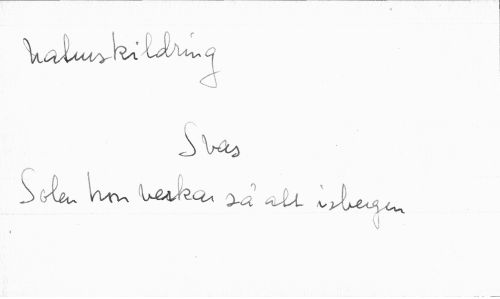 Naturskildring
Svas
Solen hon verkar så att isbergen